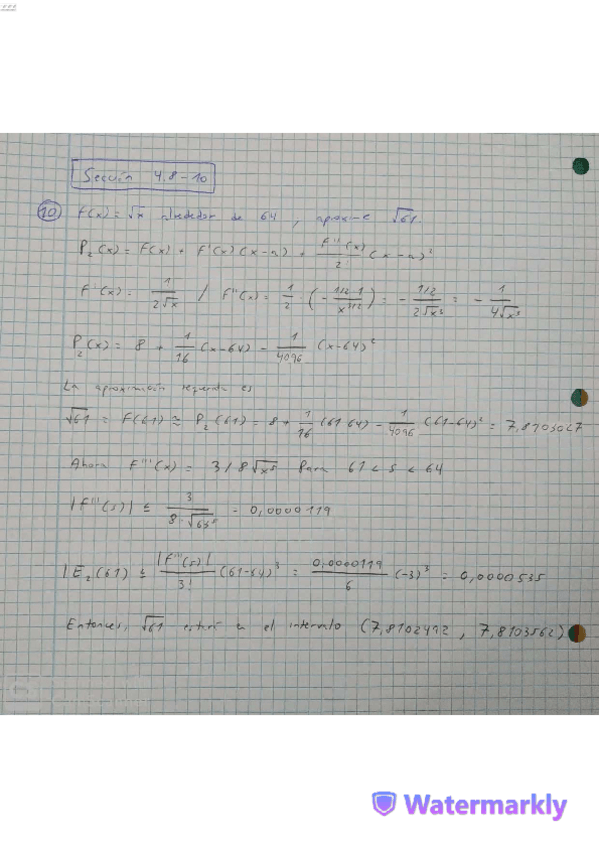 Sección 4.8-10
10 F(x) = √x alrededor de 64, aproxime √61.
P₂(x) = F(x) + F'(x)(x-a) + F''(x)/2! (x-a)²
F'(x) = 1/(2√x) / F''(x) = 1/2 · (- (1/2-1)/x^(3/2)) = - (1/2)/(2√x³) = - 1/(4√x³)
P₂(x) = 8 + 1/16 (x-64) - 1/4096 (x-64)²
La aproximación requerida es
√61 = F(61) ≈ P₂(61) = 8 + 1/16 (61-64) - 1/4096 (61-64)² = 7,8103027
Ahora F'''(x) = 3/8√x⁵ Para 61 < s < 64
|F'''(s)| ≤ 3/(8·√61⁵) = 0,0000119
|E₂(61) ≤ |F'''(s)|/3! (61-64)³ = 0,0000119/6 (-3)³ = 0,0000535
Entonces, √61 estará en el intervalo (7,8102492, 7,8103562)
Watermarkly